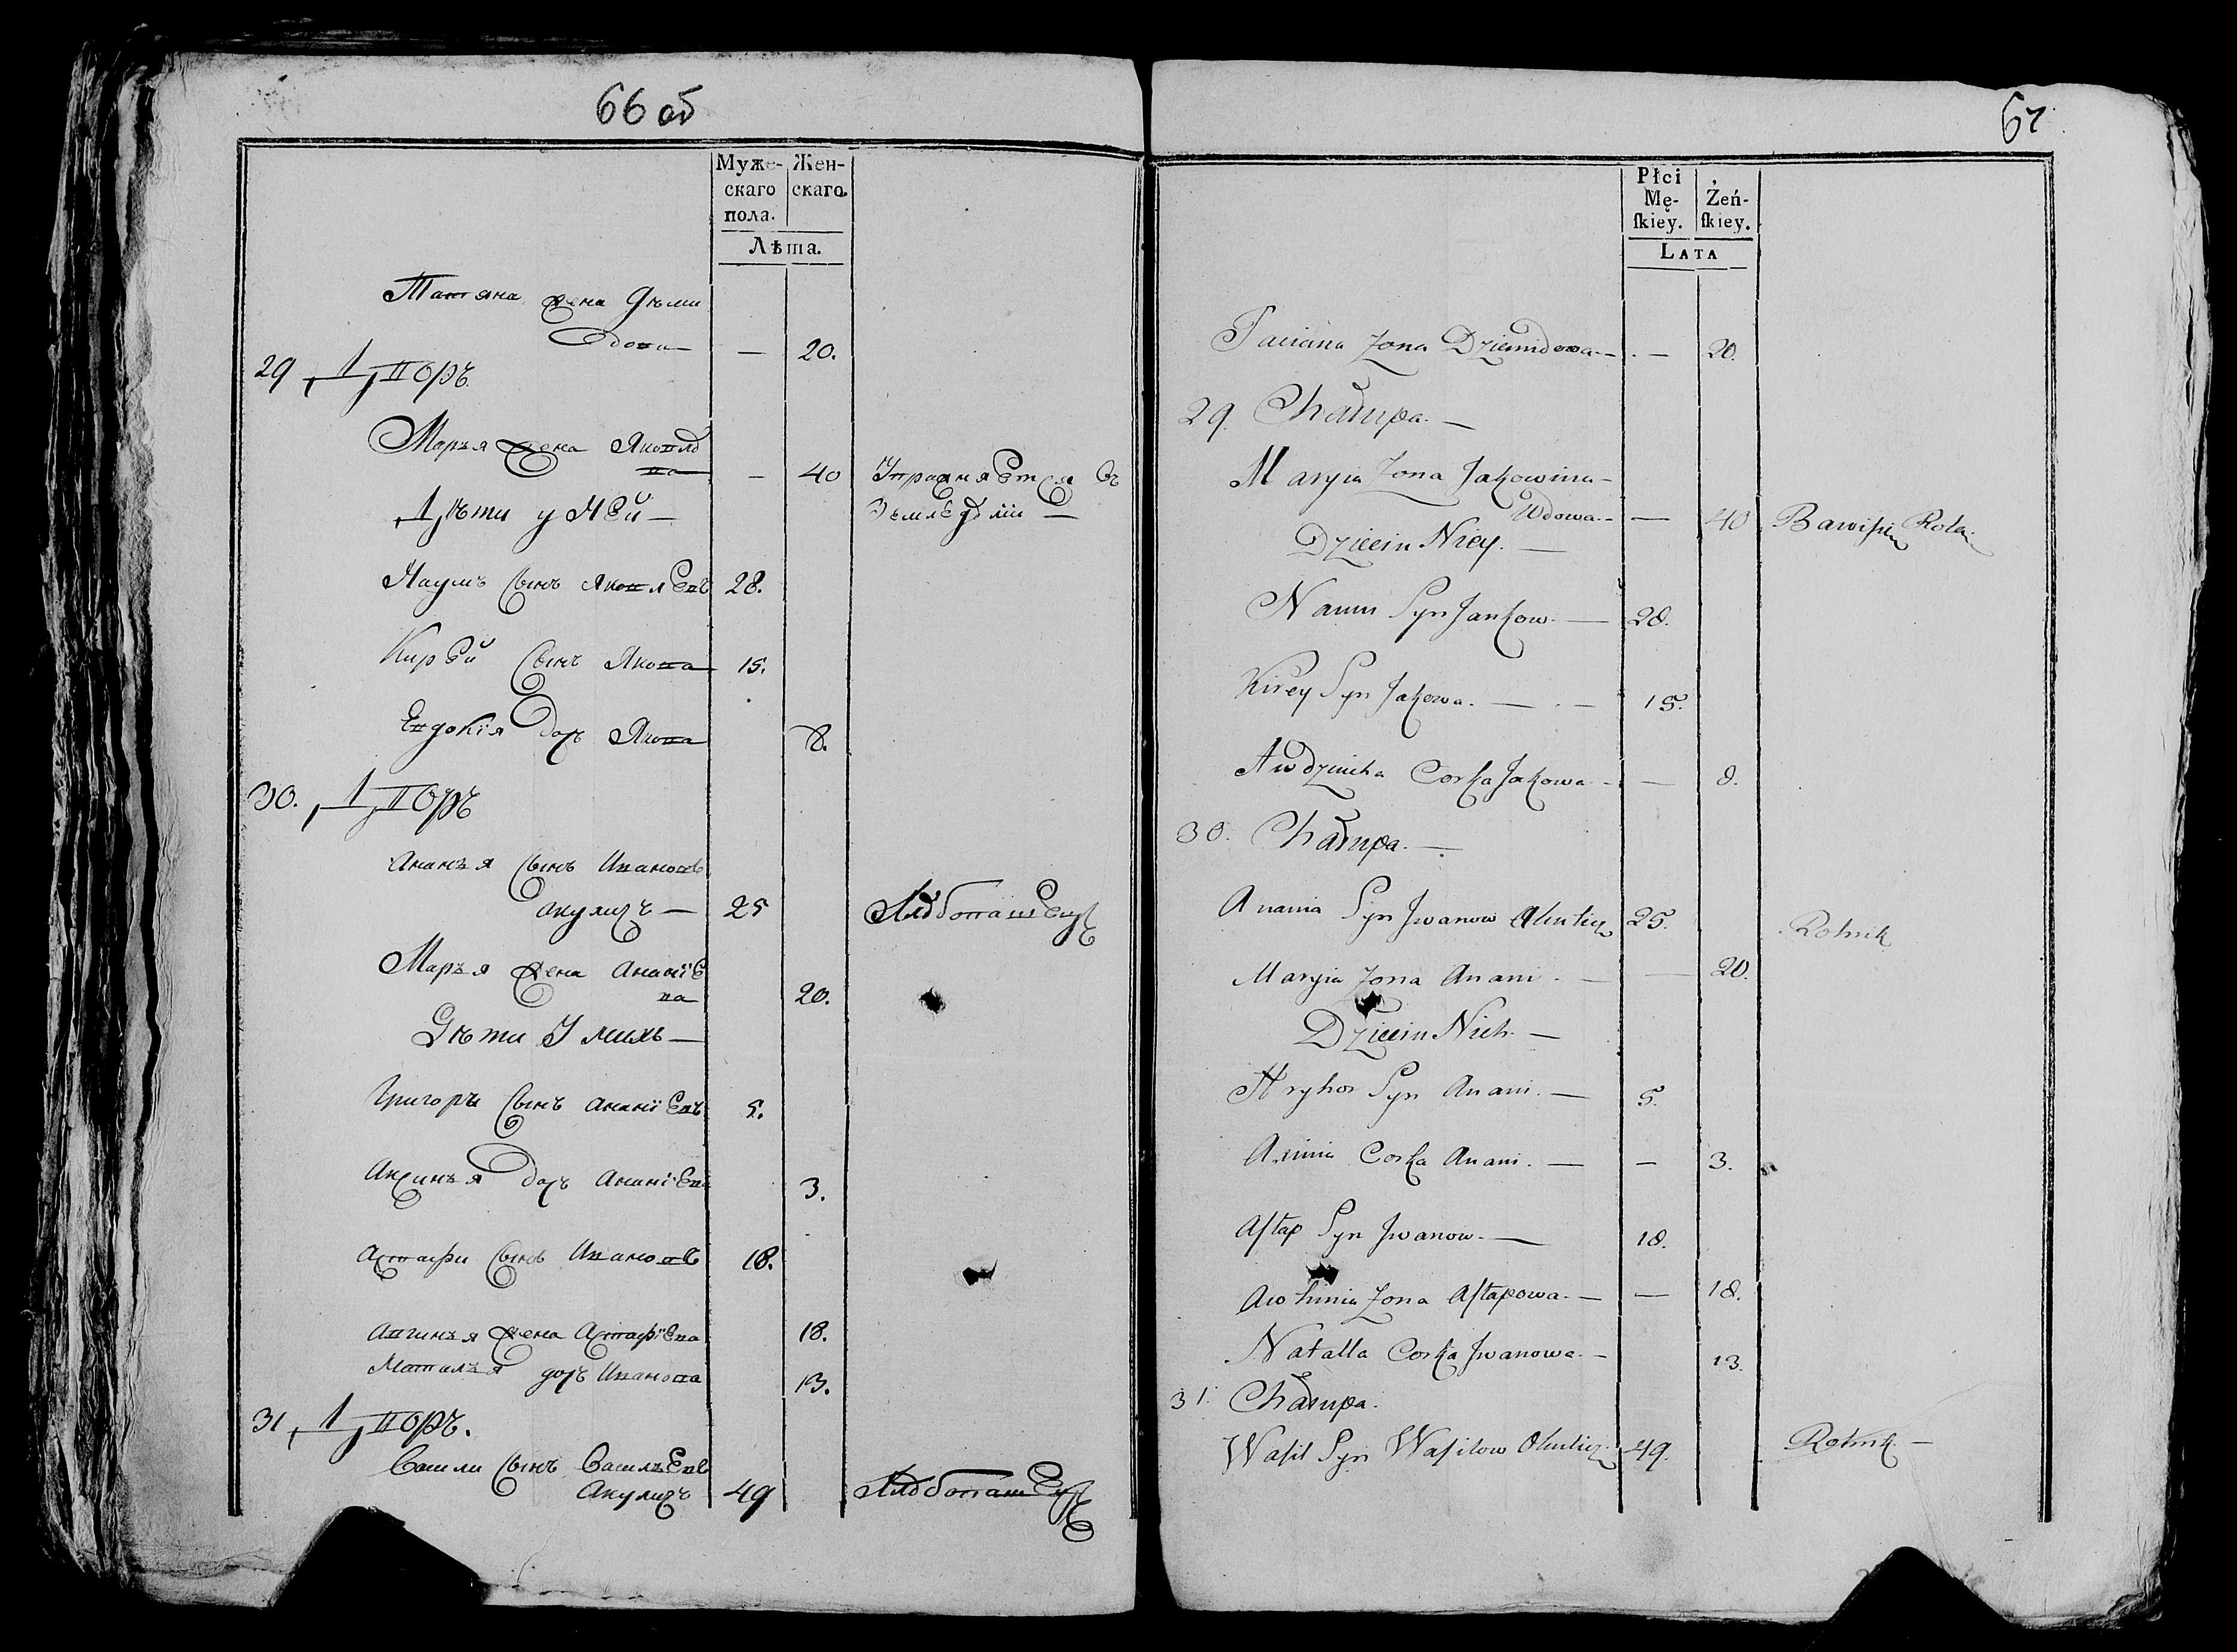 66 об
Муже- Жен-
скаго скаго.
пола.
Лѣта.
Татяна жена Дѣми
дова — 20.
29 Дворъ
Марья жена Яковлѣ
ва — 40 Упражняется въ
Дѣти у Ней — Земледѣліи —
Наумъ сынъ Яковлевъ 28.
Кирѣй сынъ Якова 15.
Евдокія дочь Якова 8.
30. Дворъ
Ананья сынъ Ивановъ
Акуличъ — 25 Хлѣбопашецъ
Марья жена Ананіе
ва 20.
Дѣти У нихъ —
Григоръи сынъ Ананіевъ 5.
Аксинья дочь Ананіева 3.
Астафи сынъ Ивановъ 18.
Авгинья жена Астафіева 18.
Наталья дочь Иванова 13.
31 Дворъ.
Васили сынъ Васильевъ
Акуличъ 49 Хлѣбопашецъ
67
Płci
Mę- Żeń-
ſkiey. ſkiey.
LATA
Taciana Zona Dziemidowa — — 20.
29. Chałupa. —
Maryia Zona Jakowina —
Wdowa — — 40 Bawiſię Rolą
Dzieci u Niey. —
Naum Syn Jankow. — 28.
Kirey Syn Jakowa. — — 15.
Awdziucha Corka Jakowa — — 8.
30. Chałupa. —
Anania Syn Jwanow Akulicz 25. Rolnik
Maryia Zona Anani. — — 20.
Dzieci u Nich. —
Hryhor Syn Anani. — 5.
Axinia Corka Anani. — — 3.
Aſtap Syn Jwanow. — 18.
Awhinia Zona Aſtapowa. — — 18.
Natalla Corka Jwanowa — 13.
31. Chałupa.
Waſil Syn Waſilow Okulicz 49. Rolnik —